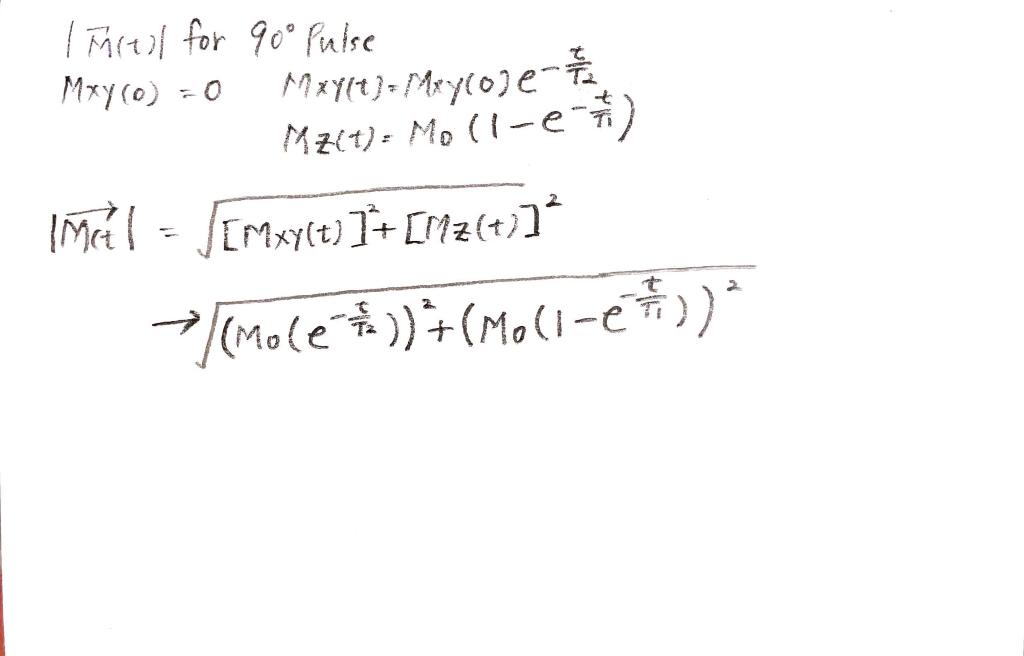 |M⃗(t)| for 90° Pulse
Mxy(0) = 0 Mxy(t) = Mxy(0)e^(-t/T2)
Mz(t) = M0 (1-e^(-t/T1))
|M⃗(t)| = √[Mxy(t)]² + [Mz(t)]²
→ √(M0(e^(-t/T2)))² + (M0(1-e^(-t/T1)))²